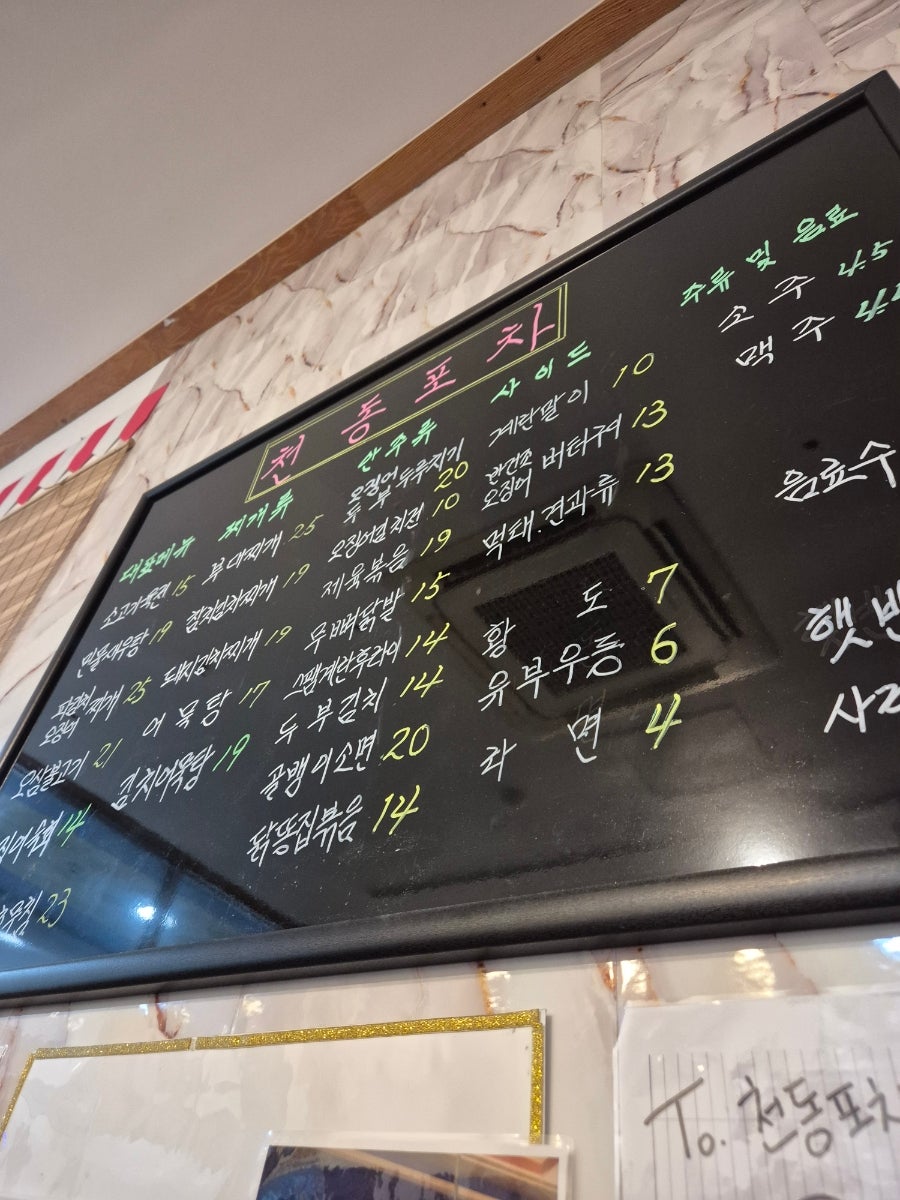 천동포차
대표메뉴
소고기육전 15
민물새우탕 19
오징어 찌개 25
오삼불고기 21
14
무침 23
찌개류
부대찌개 25
김치찌개 19
돼지김치찌개 19
어묵탕 17
김치어묵탕 19
안주류
오징어
두부 두루치기 20
오징어김치전 10
제육볶음 19
무뼈닭발 15
스팸계란후라이 14
두부김치 14
골뱅이소면 20
닭똥집볶음 14
사이드
계란말이 10
반건조
오징어 버터구이 13
먹태.견과류 13
황도 7
유부우동 6
라면 4
주류 및 음료
소주 4.5
맥주
음료수
햇반
To. 천동포차